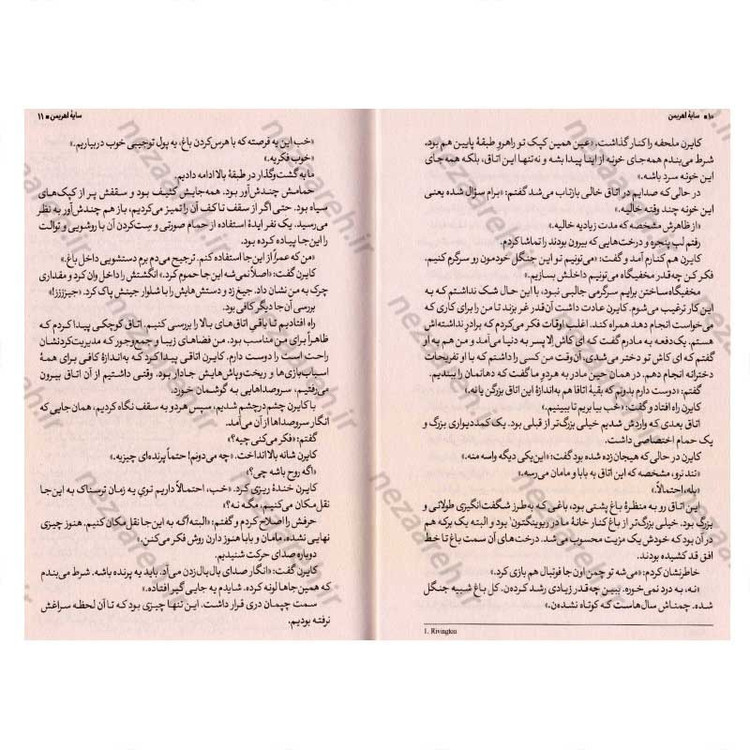 ۱۰ ■ سایهٔ اهریمن
کایرن ملحفه را کنار گذاشت. «عین همین کپک تو راهروِ طبقهٔ پایین هم بود.
شرط می‌بندم همه‌جای خونه از اینا پیدا بشه و نه‌تنها این اتاق، بلکه همه‌جای
این خونه سرد باشه.»
در حالی که صدایم در اتاق خالی بازتاب می‌شد گفتم: «برام سؤال شده یعنی
این خونه چند وقته خالیه.»
«از ظاهرش مشخصه که مدت زیادیه خالیه.»
رفتم لب پنجره و درخت‌هایی که بیرون بودند را تماشا کردم.
کایرن هم کنارم آمد و گفت: «می‌تونیم تو این جنگل خودمون رو سرگرم کنیم.
فکر کن چه‌قدر مخفیگاه می‌تونیم داخلش بسازیم.»
مخفیگاه ساختن برایم سرگرمی جالبی نبود، با این حال شک نداشتم که به
این کار ترغیب می‌شوم. کایرن عادت داشت آن‌قدر غر بزند تا من را برای کاری که
می‌خواست انجام دهد همراه کند. اغلب اوقات فکر می‌کردم که برادرِ نداشته‌اش
هستم. یک دفعه به مادرم گفت که ای کاش لالا پسر به دنیا می‌آمد و من هم به او
گفتم که ای کاش تو دختر می‌شدی، آن‌وقت من کسی را داشتم که با او تفریحات
دخترانه انجام دهم. در همان حین مادر به هردو ما گفت که دهانمان را ببندیم.
گفتم: «دوست دارم بدونم که بقیهٔ اتاقا هم به‌اندازهٔ این اتاق بزرگن یا نه.»
کایرن راه افتاد و گفت: «خب بیا بریم تا ببینیم.»
اتاق بعدی که واردش شدیم خیلی بزرگ‌تر از قبلی بود. یک کمددیواری بزرگ و
یک حمام اختصاصی داشت.
کایرن در حالی که هیجان‌زده شده بود گفت: «این یکی دیگه واسه منه.»
«تند نرو، مشخصه که این اتاق به بابا و مامان می‌رسه.»
«بله، احتمالاً.»
این اتاق رو به منظرهٔ باغ پشتی بود، باغی که به‌طرز شگفت‌انگیزی طولانی و
بزرگ بود. خیلی بزرگ‌تر از باغ کنار خانهٔ ما در ریوینگتون¹ بود و البته یک برکه هم
در آن بود که خودش یک مزیت محسوب می‌شد. درخت‌های آن سمت باغ تا خط
افق قد کشیده بودند.
خاطرنشان کردم: «می‌شه تو چمن اون جا فوتبال هم بازی کرد.»
«نه، به درد نمی‌خوره. ببین چه‌قدر زیادی رشد کرده‌ن. کل باغ شبیه جنگل
شده. چمناش سال‌هاست که کوتاه نشده‌ن.»
1. Rivington
سایهٔ اهریمن ■ ۱۱
«خب این یه فرصته که با هرس‌کردن باغ، یه پول توجیبی خوب دربیاریم.»
«خوب فکریه.»
ما به گشت‌وگذار در طبقهٔ بالا ادامه دادیم.
حمامش چندش‌آور بود. همه‌جایش کثیف بود و سقفش پر از کپک‌های
سیاه بود. حتی اگر از سقف تا کف آن را تمیز می‌کردیم، باز هم چندش‌آور به نظر
می‌رسید. یک نفر ایدهٔ استفاده از حمام صورتی و ست‌کردن آن با روشویی و توالت
را این‌جا پیاده کرده بود.
«من که عمراً از این‌جا استفاده کنم. ترجیح می‌دم برم دستشویی داخل باغ.»
کایرن گفت: «اصلاً نمی‌شه این‌جا حموم کرد.» انگشتش را داخل وان کرد و مقداری
چرک به من نشان داد. جیغ زد و دستش‌هایش را با شلوار جینش پاک کرد. «جیزززز!»
بررسی آن‌جا دیگر کافی بود.
راه افتادیم تا باقی اتاق‌های بالا را بررسی کنیم. اتاق کوچکی پیدا کردم که
ظاهراً برای من مناسب بود. من فضاهای زیبا و جمع‌وجور که مدیریت‌کردنشان
راحت است را دوست دارم. کایرن اتاقی پیدا کرد که به‌اندازهٔ کافی برای همهٔ
اسباب‌بازی‌ها و ریخت‌وپاش‌هایش جادار بود. وقتی داشتیم از آن اتاق بیرون
می‌رفتیم، سروصداهایی به گوشمان خورد.
با کایرن چشم‌درچشم شدیم، سپس هردو به سقف نگاه کردیم، همان جایی که
انگار سروصداها از آن می‌آمد.
گفتم: «فکر می‌کنی چیه؟»
کایرن شانه بالا انداخت. «چه می‌دونم! حتماً پرنده‌ای چیزیه.»
«اگه روح باشه چی؟»
کایرن خندهٔ ریزی کرد. «خب، احتمالاً داریم تویِ یه زمان ترسناک به این‌جا
نقل‌مکان می‌کنیم، مگه نه؟»
حرفش را اصلاح کردم و گفتم: «البته اگه به این‌جا نقل‌مکان کنیم. هنوز چیزی
نهایی نشده. مامان و بابا هنوز دارن روش فکر می‌کنن.»
دوباره صدای حرکت شنیدیم.
کایرن گفت: «انگار صدای بال‌بال‌زدن می‌آد. باید یه پرنده باشه. شرط می‌بندم
که همین جاها لونه کرده. شایدم یه جایی گیر افتاده.»
سمت چپمان دری قرار داشت. این تنها چیزی بود که تا آن لحظه سراغش
نرفته بودیم.